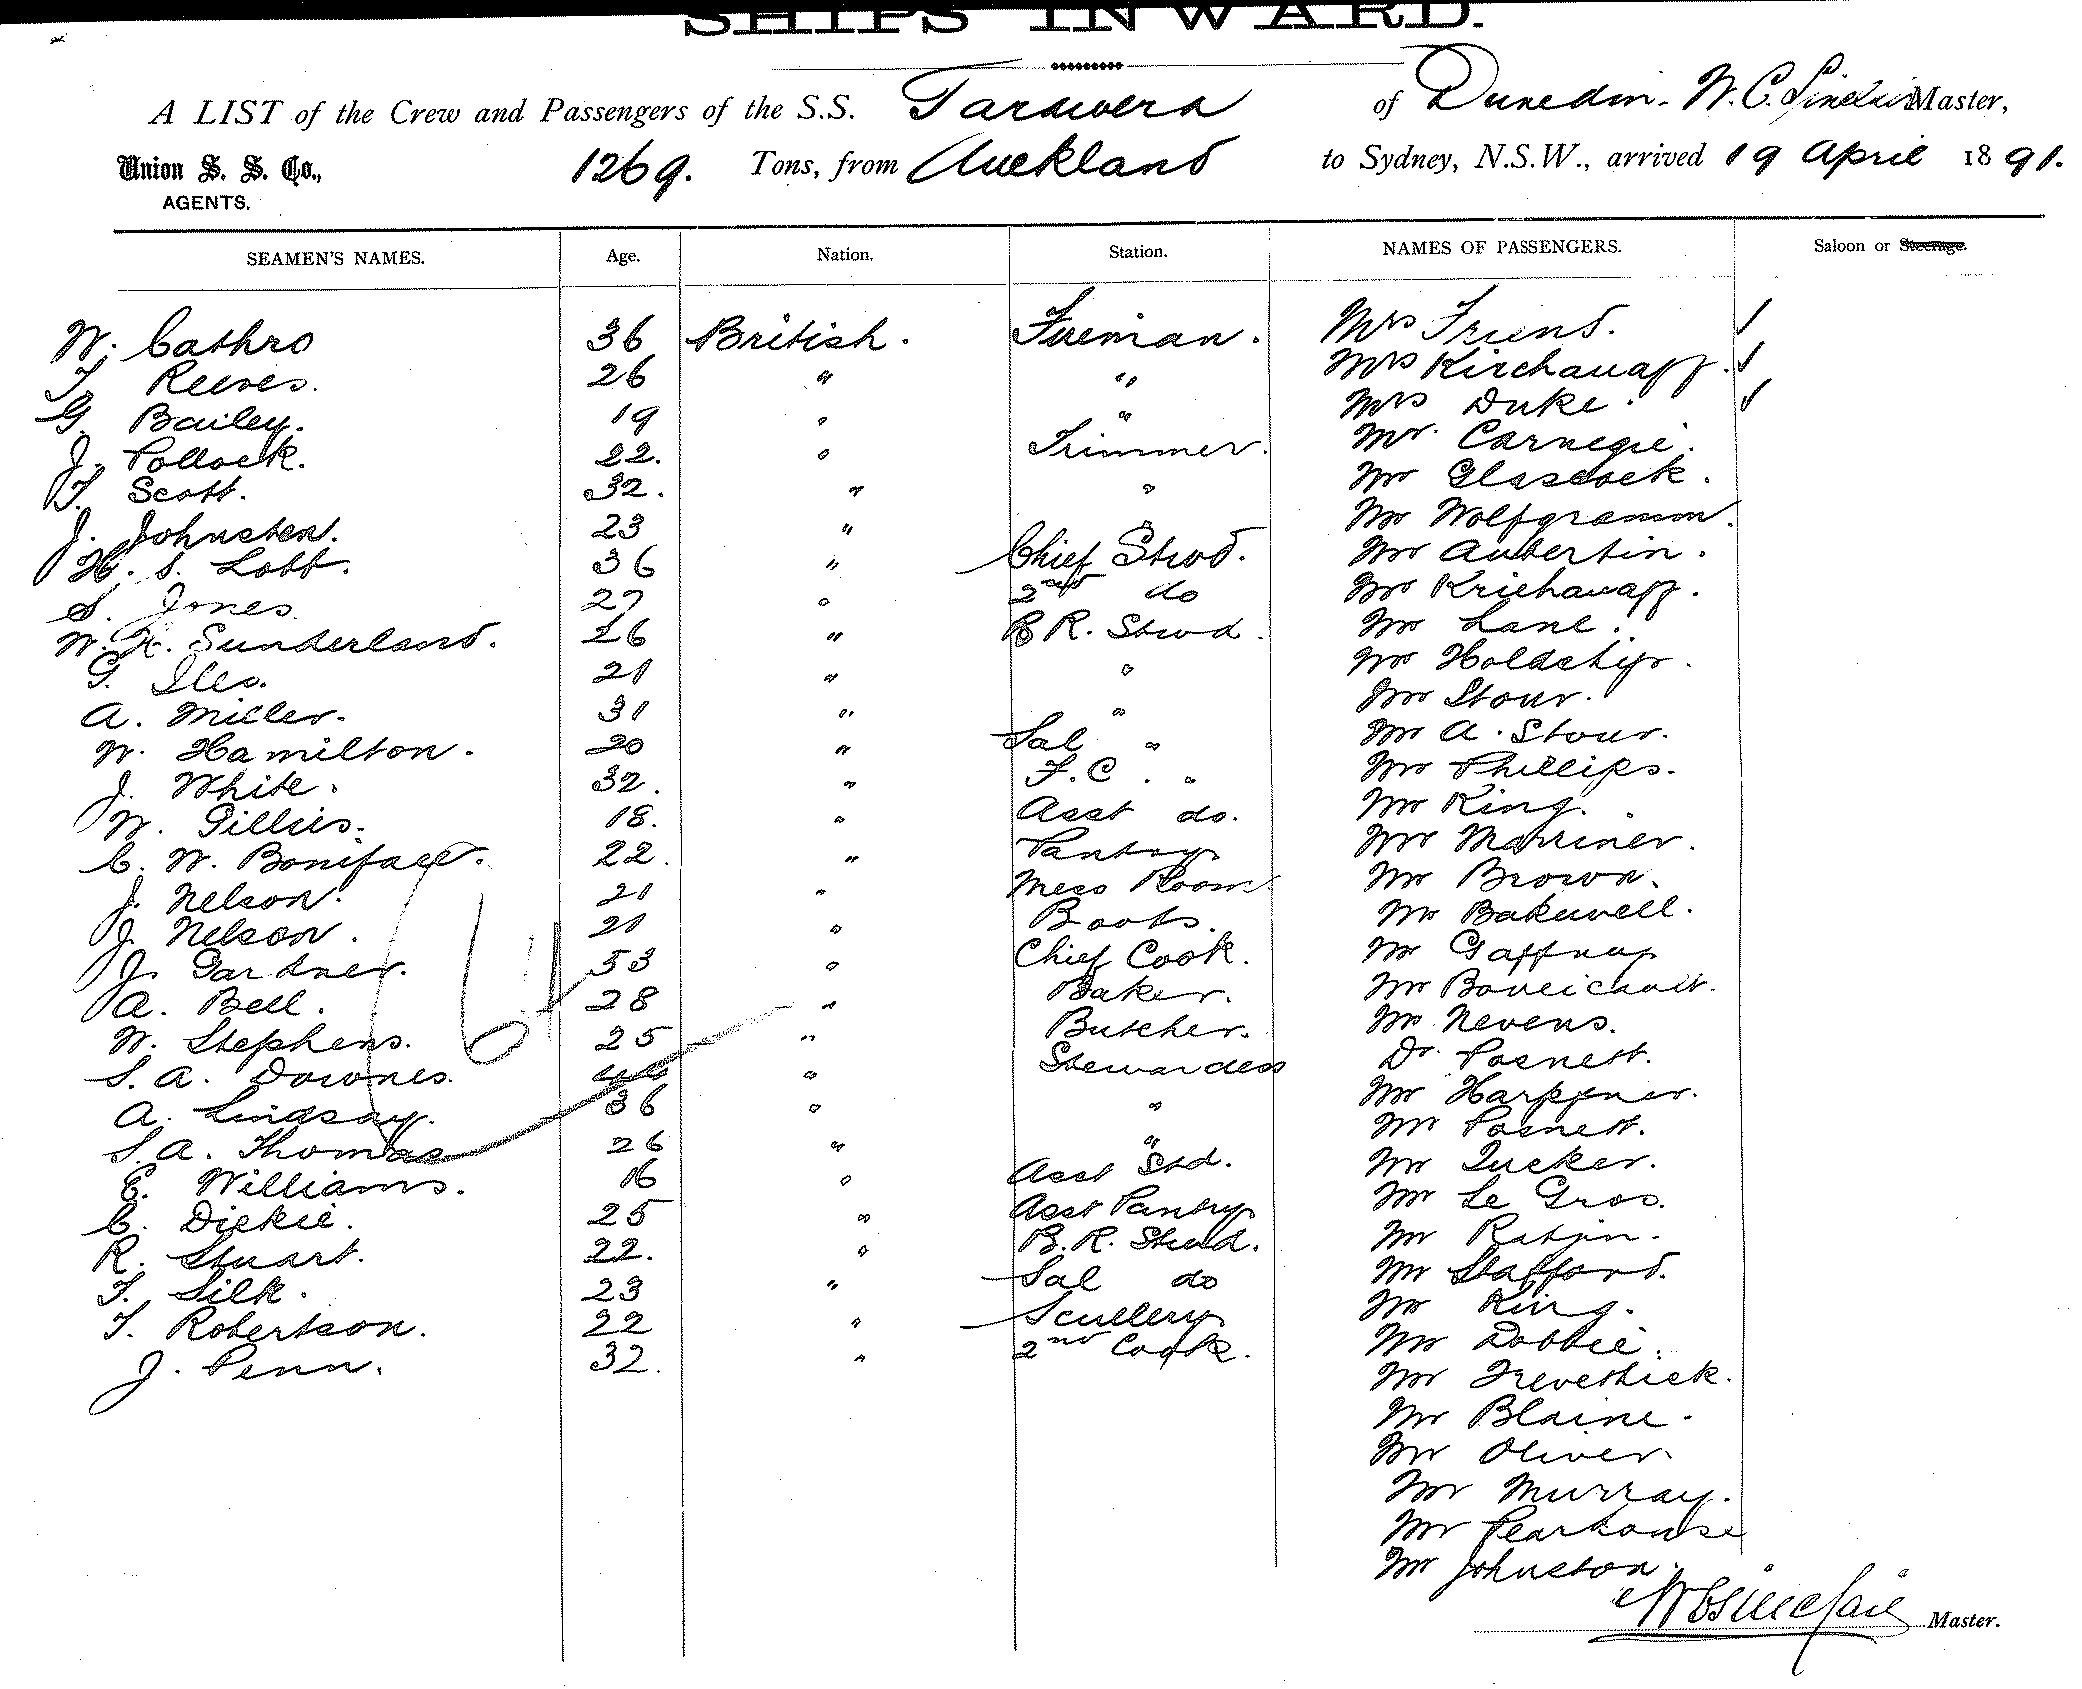 SHIPS INWARD.
A LIST of the Crew and Passengers of the S.S. Tarawera of Dunedin. W. C. Sinclair Master,
Union S. S. Co., 1269. Tons, from Auckland to Sydney, N.S.W., arrived 19 April 1891.
AGENTS.
SEAMEN'S NAMES. Age. Nation. Station. NAMES OF PASSENGERS. Saloon or Steerage.
W. Cathro 36 British. Fireman. Mrs Friend. ✓
T. Reeves. 26 " " Mrs Kirchauaff. ✓
G. Bailey. 19 " " Mrs Duke. ✓
J. Pollock. 22. " Trimmer. Mr. Carnegie.
T. Scott. 32. " " Mr Glascock.
J. Johnston. 23 " " Mr Wolfgramm.
H. S. Lobb. 36 " Chief Stwd. Mr Aubertin.
S. Jones. 27 " 2nd do Mr Krichauaff.
W. H. Sunderland. 26 " B R. Stwd. Mr Lane.
G. Iles. 21 " " Mr Holdship.
A. Miller. 31 " " Mr Stour.
W. Hamilton. 20 " Sal " Mr A. Stour.
J. White. 32. " F.C. " Mr Phillips.
W. Gillies. 18. " Asst do. Mr King.
C. W. Boniface. 22. " Pantry Mr Marriner.
J. Nelson. 21 " Mess Room Mr Brown.
J. Nelson. 21 " Boots. Mr Bakewell.
J. Gardner. 53 " Chief Cook. Mr Gaffney
A. Bell. 28 " Baker. Mr Boucicault.
W. Stephens. 25 " Butcher. Mr Nevens.
S. A. Downes. 46 " Stewardess Dr. Posnett.
A. Lindsay. 36 " " Mr Harppner.
S. A. Thomas 26 " " Mr Posnett.
E. Williams. 16 " Asst Std. Mr Tucker.
C. Dickie. 25 " Asst Pantry Mr Le Gros.
R. Stuart. 22. " B. R. Stwd. Mr Ratjin.
T. Silk. 23 " Sal do Mr Stafford.
T. Robertson. 22 " Scullery Mr King.
J. Penn. 32. " 2nd Cook. Mr Dobbie.
Mr Trevethick.
Mr Blaine.
Mr Oliver
Mr Murray.
Mr Pearhouse
Mr Johnston.
64
W C Sinclair Master.